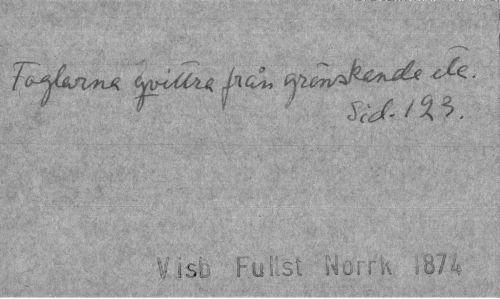 Foglarna qvittra från grönskande etc.
Sid. 123.
Visb Fullst Norrk 1874